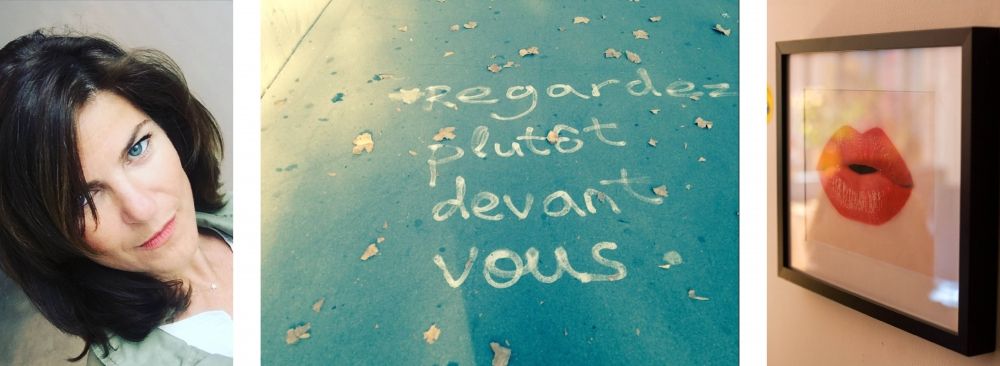 Regardez
plutôt
devant
vous.